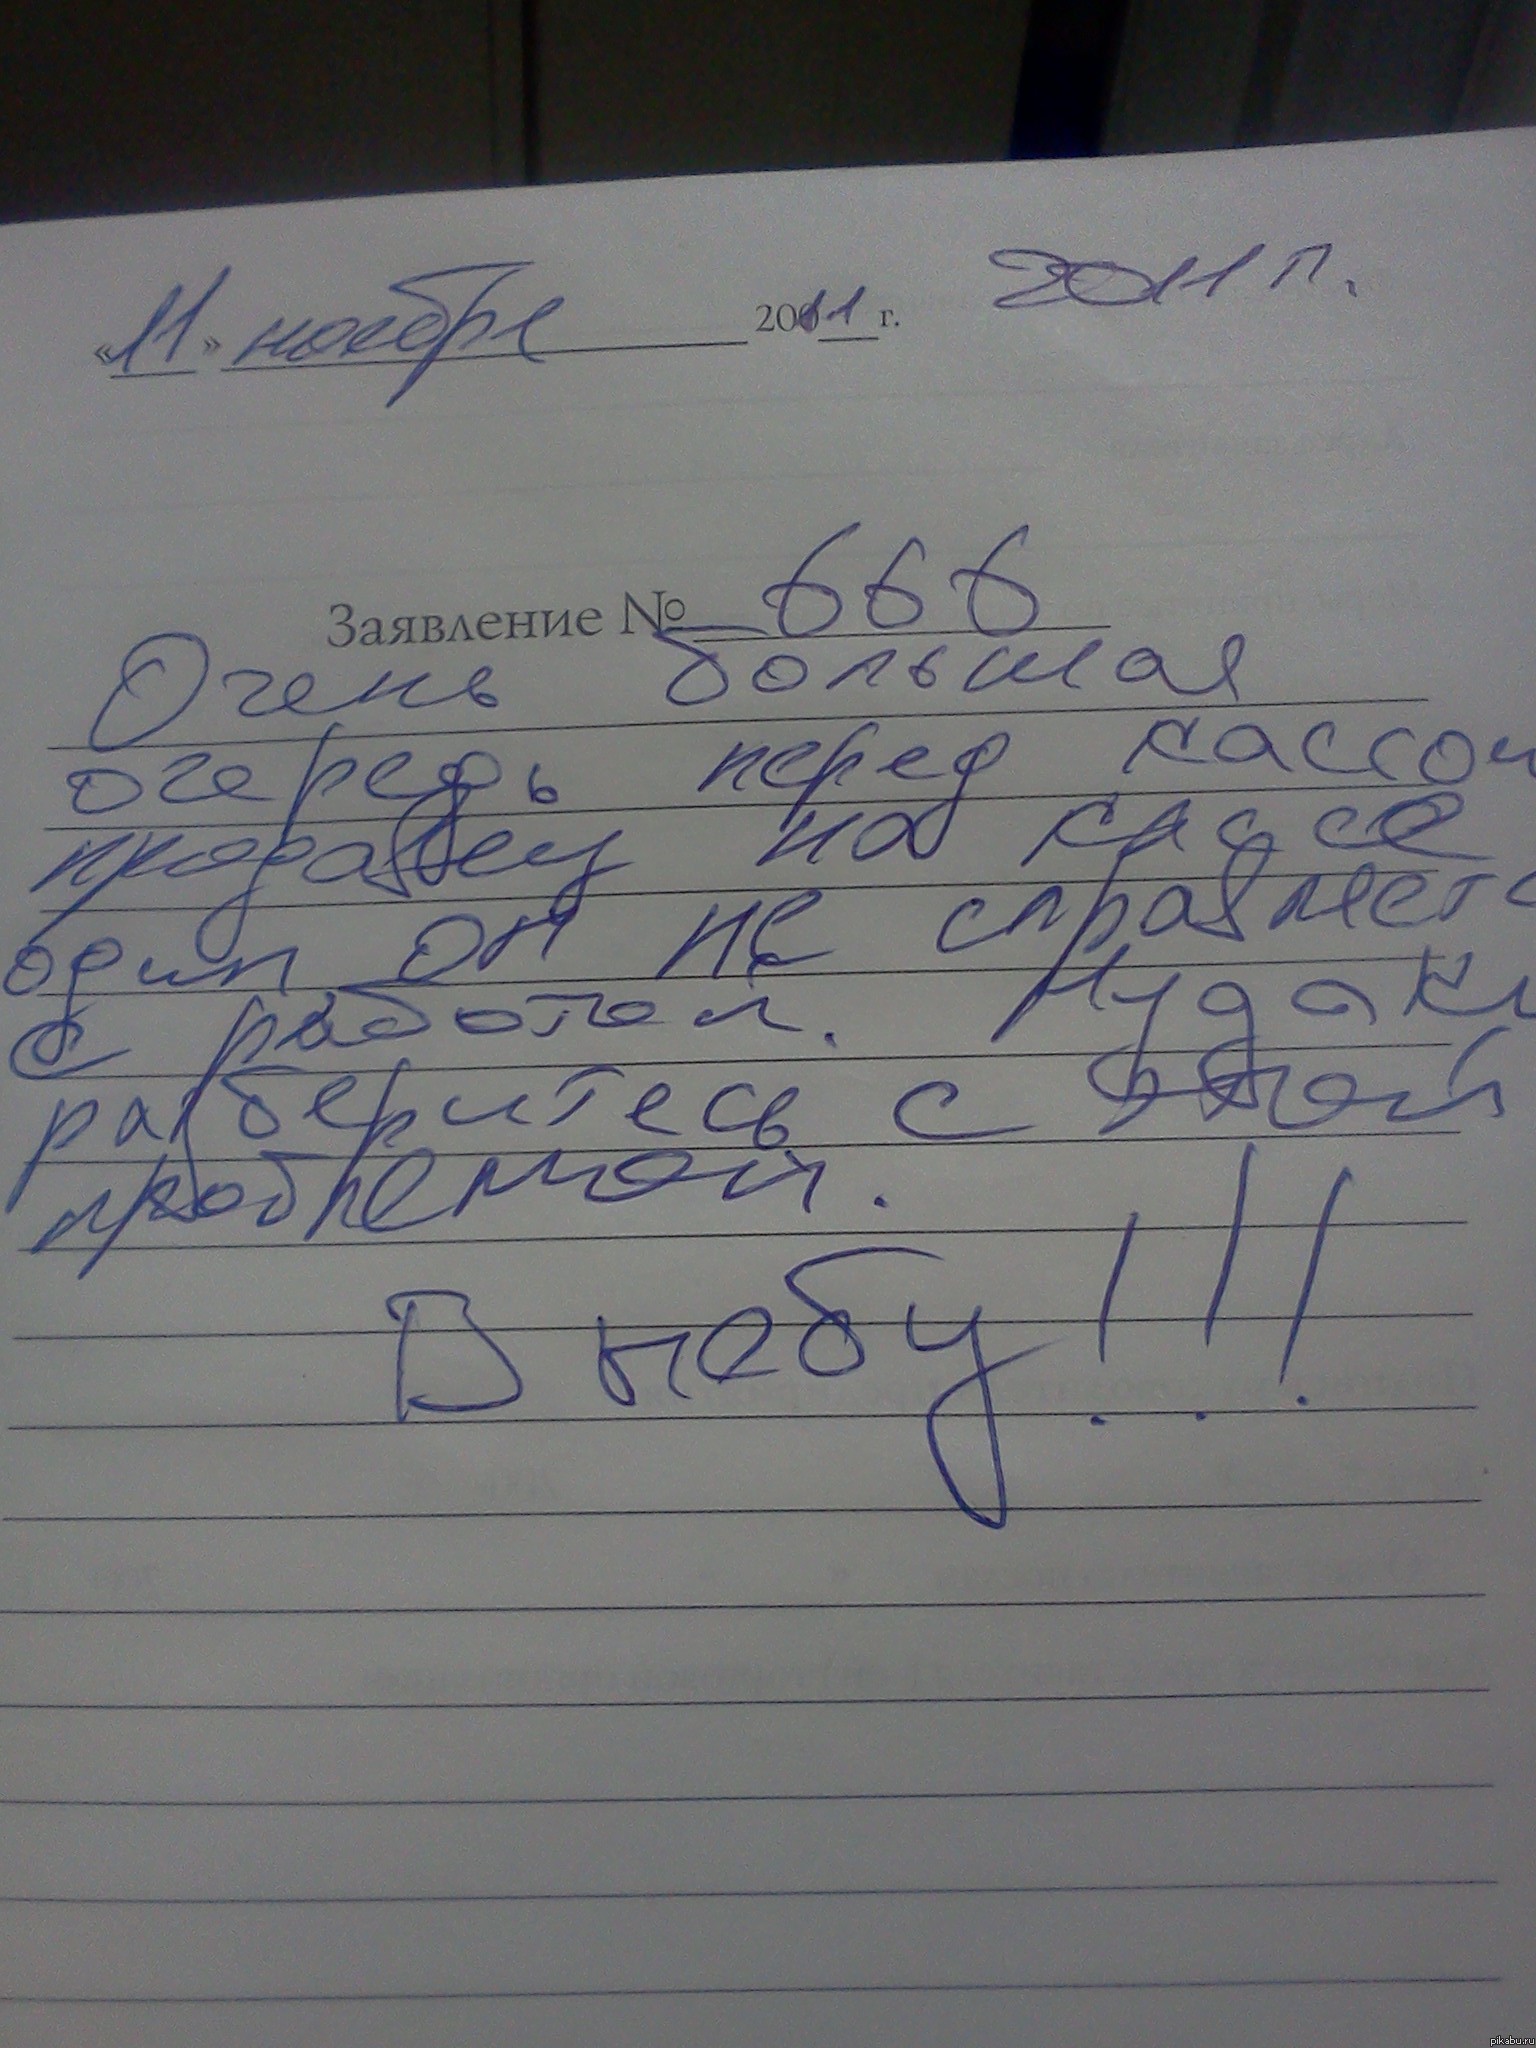 «11» ноября 2011 г. 2011 г.
Заявление № 666
Очень большая
очередь перед кассой
продавец на кассе
один он не справляетс
с работой. Чудаки
разберитесь с этой
проблемой.
В небу!!!
pikabu.ru